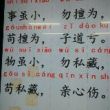 事虽小，勿擅为，
gǒu shàn wéi zǐ dào kuī
苟擅为，子道亏。
wù suī xiǎo wù sī cáng
物虽小，勿私藏，
gǒu sī cáng qīn xīn shāng
苟私藏，亲心伤。